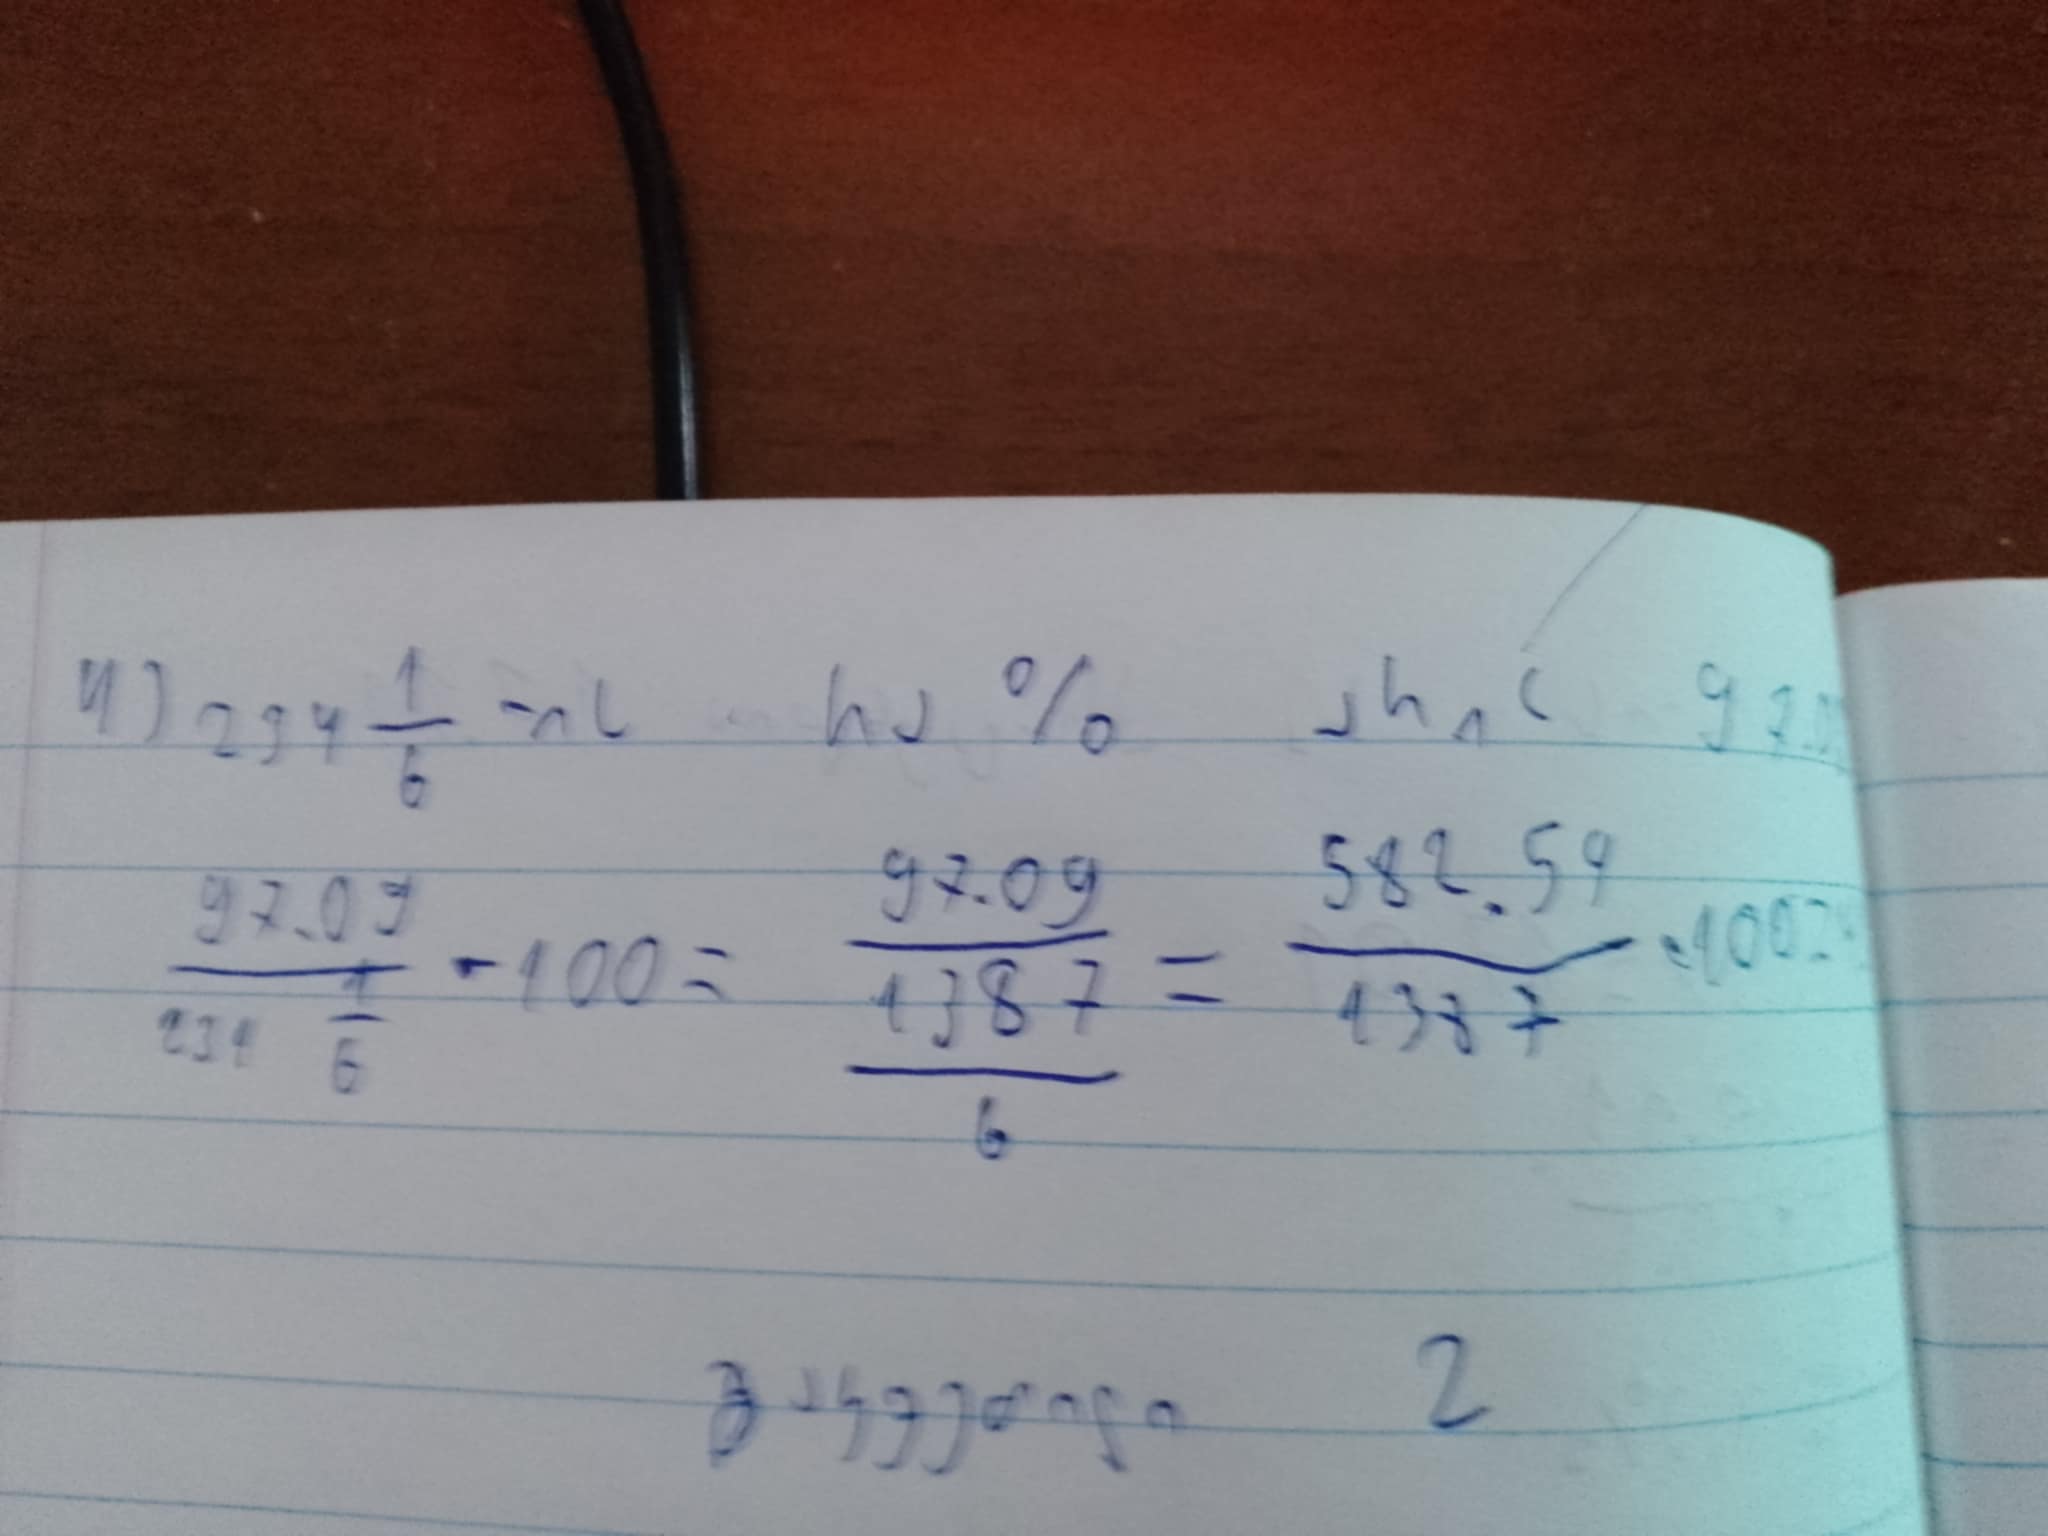 4) 234 1/6 -ის რა % არის 97.0
97.09 / 234 1/6 · 100 = 97.09 / 1387/6 = 582.54 / 1387 · 100
2